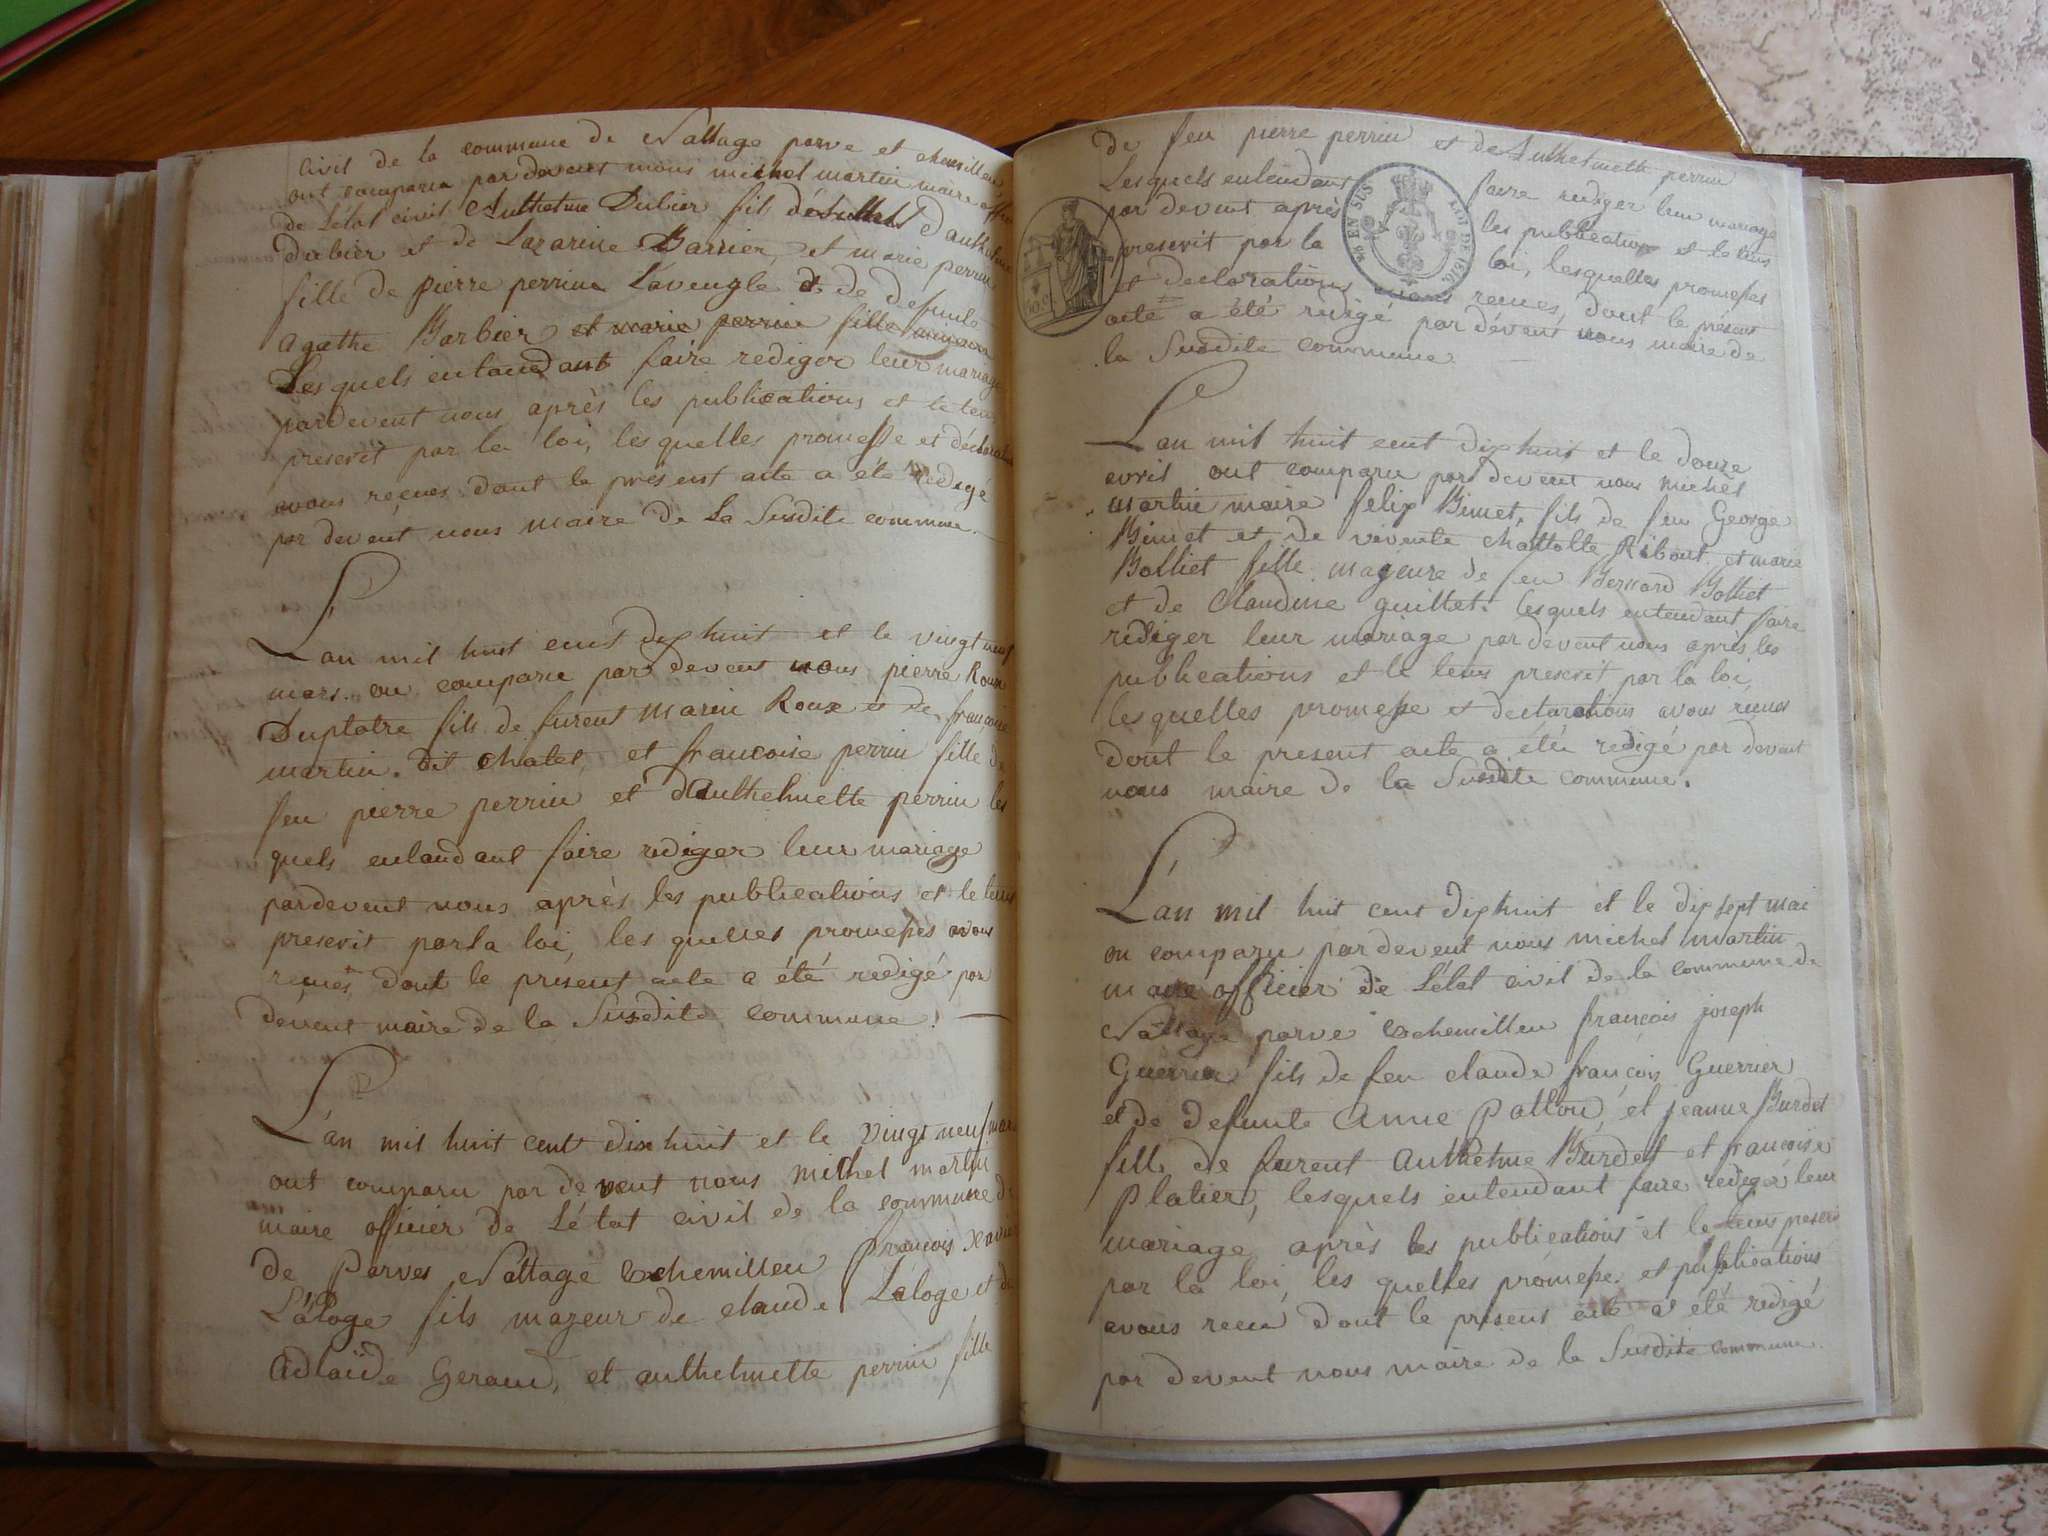 civil de la commune de Nattage parve et chemilleu
ont comparu pardevent nous michel martin maire
de Létat civil Anthelme Dubier fil d'Anthelme
dubier et de Lazarine Barrier, et marie perrin
fille de pierre perrin Laveugle et de defunte
agathe Barbier et marie perrin fille mineure
Lesquels entandant faire rediger leur mariage
pardevent nous après les publications et le tem
prescrit par la loi, les quelles promesse et déclaration
avons reçues dont le présent acte a été redigé
par devent nous maire de La Susdite commune.
L'an mil huit cent dix huit et le vingt neuf
mars. on comparu par devent nous pierre Roux
Duplatre fils de furent Marin Roux et de françoise
martin. dit chatel, et francoise perrin fille de
feu pierre perrin et d'Anthelmette perrin les
quels entandant faire rediger leur mariage
pardevent nous après les publications et le tems
prescrit par la loi, les quelles promesses avons
reçues dont le present acte a été redigé par
devent maire de la Susdite commune.
L'an mil huit cent dix huit et le vingt neuf mars
ont comparu par devent nous Michel martin
maire officier de L'état civil de la commune de
de Parves Nattage & chemilleu François Xavier
Laloge fils majeur de claude Laloge et de
Adlaïde Geraud, et anthelmette perrin fille
de feu pierre perrin et de Anthelmette perrin
Lesquels entendant faire rediger leur mariage
par devent après les publication et le tems
prescrit par la loi, lesquelles promesses
et declarations avons reçues, dont le présent
acte a été redigé par dévent nous maire de
la Susdite commune
EN SUS
LOI DE 1816
L'an mil huit cent dix huit et le douze
avril ont comparu par devent nous Michel
martin maire felix Binet, fils de feu George
Binet et de vivente chattolte Ribout et marie
Bolliet fille majeure de feu Bernard Bolliet
et de Claudine guillet. lesquels entendant faire
rédiger leur mariage par devent nous après les
publications et le tems prescrit par la loi,
lesquelles promesse et declarations avons reçues
dont le present acte a été redigé par devant
nous maire de la Susdite commune.
L'an mil huit cent dix huit et le dix sept mai
on comparu par devent nous michel martin
maire officier de L'état civil de la commune de
Nattage parve & chemilleu françois joseph
Guerrier fils de feu claude françois Guerrier
et de defunte Anne Pallou, et jeanne Burdet
fille de furent Anthelme Burdet et francoise
Platier, lesquels entendant faire rediger leur
mariage après les publications et le tems prescrit
par la loi, les quelles promesse et publications
avons reçu dont le present acte a été redigé
par devent nous maire de la Susdite commune.